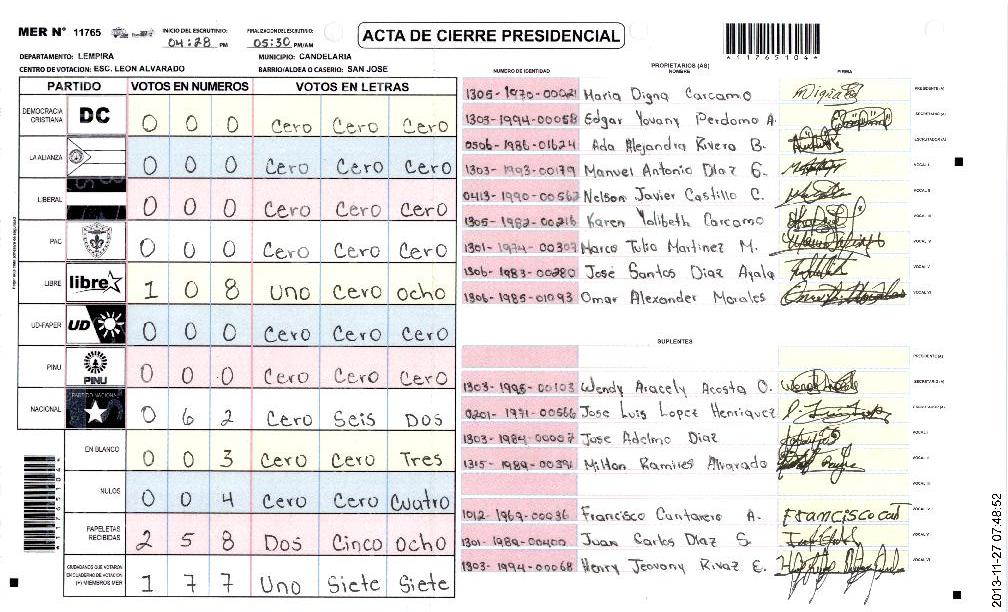 MER N° 11765
INICIO DEL ESCRUTINIO: 04:28 PM
FINALIZACION DEL ESCRUTINIO: 05:30 PM/AM
ACTA DE CIERRE PRESIDENCIAL
*11765104*
DEPARTAMENTO: LEMPIRA
MUNICIPIO: CANDELARIA
CENTRO DE VOTACION: ESC. LEON ALVARADO
BARRIO/ALDEA O CASERIO: SAN JOSE
PARTIDO VOTOS EN NUMEROS VOTOS EN LETRAS
DEMOCRACIA CRISTIANA DC 0 0 0 Cero Cero Cero
LA ALIANZA 0 0 0 Cero Cero Cero
LIBERAL 0 0 0 Cero Cero Cero
PAC 0 0 0 Cero Cero Cero
LIBRE libre 1 0 8 Uno Cero Ocho
UD-FAPER UD 0 0 0 Cero Cero Cero
PINU PINU 0 0 0 Cero Cero Cero
NACIONAL PARTIDO NACIONAL 0 6 2 Cero Seis Dos
EN BLANCO 0 0 3 Cero Cero Tres
NULOS 0 0 4 Cero Cero Cuatro
PAPELETAS RECIBIDAS 2 5 8 Dos Cinco Ocho
CIUDADANOS QUE VOTARON EN CUADERNO DE VOTACION (+) MIEMBROS MER 1 7 7 Uno Siete Siete
NUMERO DE IDENTIDAD PROPIETARIOS (AS) NOMBRE FIRMA
1305-1970-00021 Maria Digna Carcamo PRESIDENTE (A)
1303-1994-00058 Edgar Yovany Perdomo A. SECRETARIO (A)
0506-1986-01624 Ada Alejandra Rivera B. ESCRUTADOR (A)
1303-1993-00179 Manuel Antonio Diaz G. VOCAL I
0413-1990-00562 Nelson Javier Castillo C. VOCAL II
1305-1982-00216 Karen Yolibeth Carcamo VOCAL III
1301-1974-00307 Marco Tulio Martinez M. VOCAL IV
1306-1983-00280 José Santos Diaz Ayala VOCAL V
1306-1985-01093 Omar Alexander Morales VOCAL VI
SUPLENTES
PRESIDENTE (A)
1303-1995-00103 Wendy Aracely Acosta O. SECRETARIO (A)
0201-1971-00566 Jose Luis Lopez Henriquez ESCRUTADOR (A)
1303-1984-00007 Jose Adelmo Diaz VOCAL I
1315-1989-00391 Milton Ramires Alvarado VOCAL II
VOCAL III
1012-1969-00036 Francisco Cantarero A. VOCAL IV
1301-1989-00400 Juan Carlos Diaz S. VOCAL V
1303-1994-00068 Henry Jeovany Rivaz E. VOCAL VI
2013-11-27 07:48:52